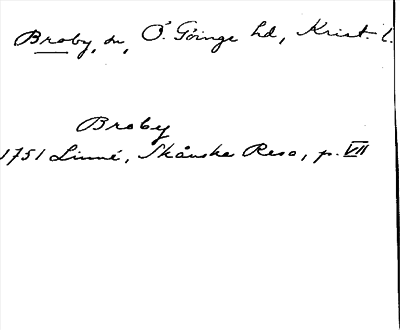 Broby, sn, Ö. Göinge hd, Krist. l.
Broby
1751 Linné, Skånska Resa, p. VII